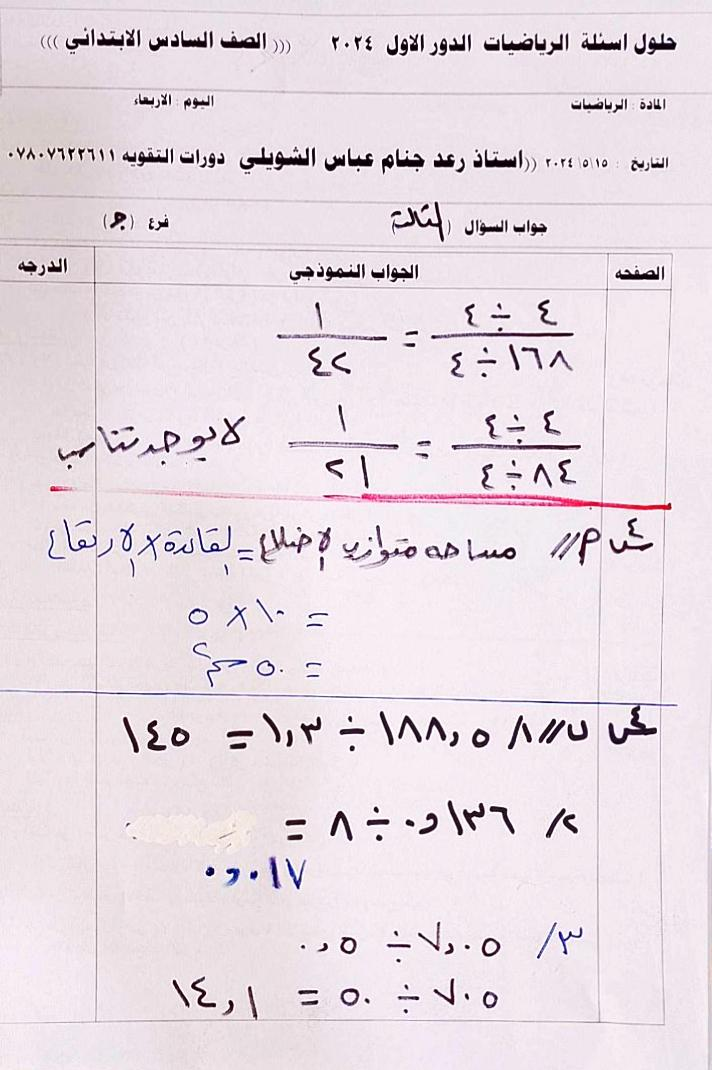 حلول اسئلة الرياضيات الدور الاول ٢٠٢٤ ((( الصف السادس الابتدائي )))
المادة : الرياضيات اليوم : الاربعاء
التاريخ : ٢٠٢٤/٥/١٥ ((استاذ رعد جنام عباس الشويلي دورات التقويه ٠٧٨٠٧٦٢٢٦١١
جواب السؤال (الثالث) فرع (جـ)
الصفحه الجواب النموذجي الدرجه
٤ ÷ ٤ / ١٦٨ ÷ ٤ = ١ / ٤٢
٤ ÷ ٤ / ٨٤ ÷ ٤ = ١ / ٢١ لا يوجد تناسب
س٤ م// مساحه متوازي الاضلاع = القاعدة × الارتفاع
= ١٠ × ٥
= ٥٠ سم٢
س٤ ب// ١/ ١٨٨,٥ ÷ ١,٣ = ١٤٥
٢/ ٠,١٣٦ ÷ ٨ =
٠,٠١٧
٣/ ٧,٠٥ ÷ ٠,٥
٧٠٥ ÷ ٥٠ = ١٤,١